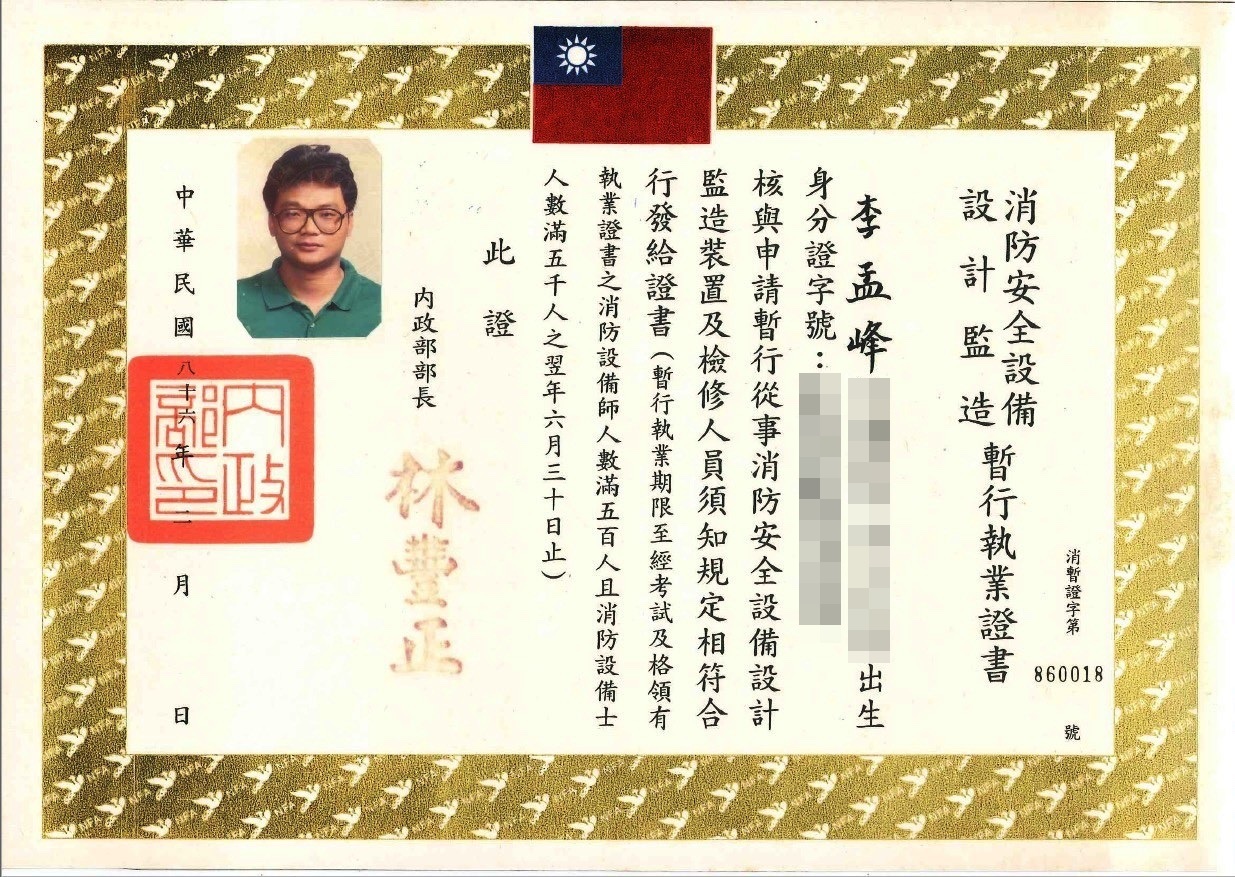 消暫證字第 860018 號
消防安全設備
設計監造
暫行執業證書
李孟峰
出生
身分證字號：
核與申請暫行從事消防安全設備設計
監造裝置及檢修人員須知規定相符合
行發給證書（暫行執業期限至經考試及格領有
執業證書之消防設備師人數滿五百人且消防設備士
人數滿五千人之翌年六月三十日止）
此證
內政部部長
林豐正
中華民國八十六年二月 日
內政
部印
NFA